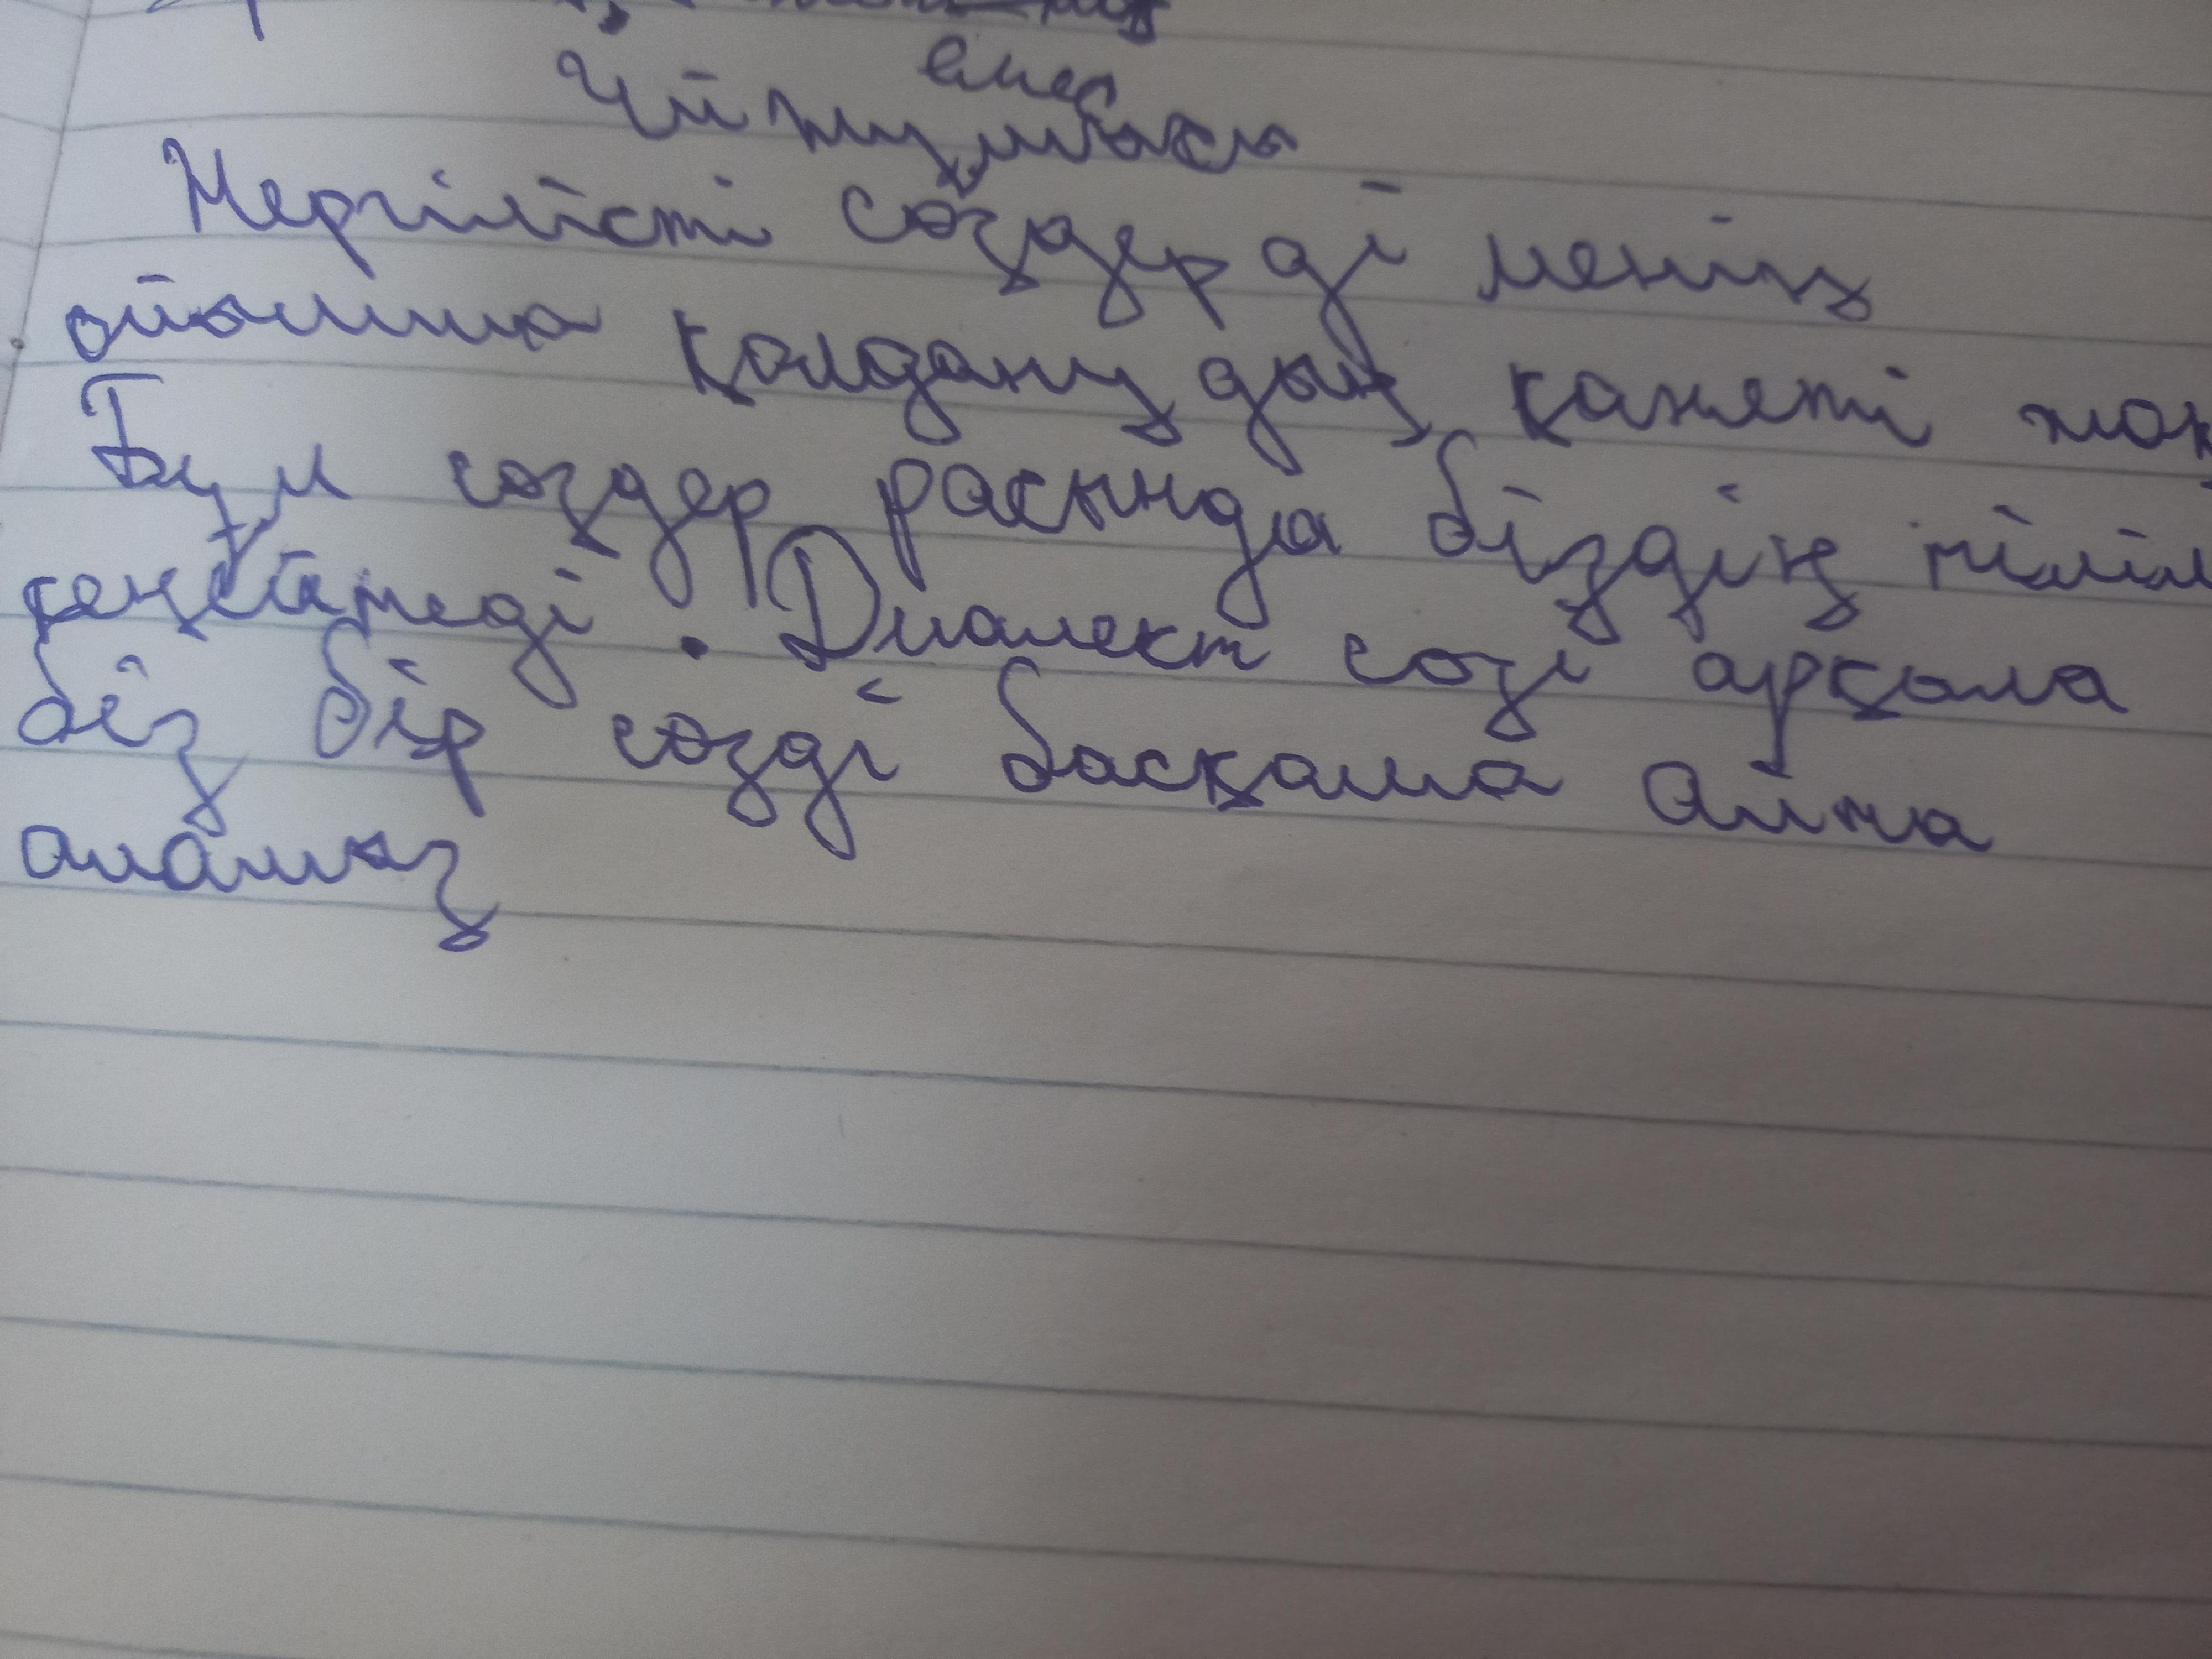 емес
Үй жұмысы
Жергілісті сөздер ді менің
ойымша қолдану дың қажеті жоқ
Бұл сөздер расында біздің тілім
кеңейтпеді. Диалект созі арқыла
біз бір сөзді басқаша айта
аламыз